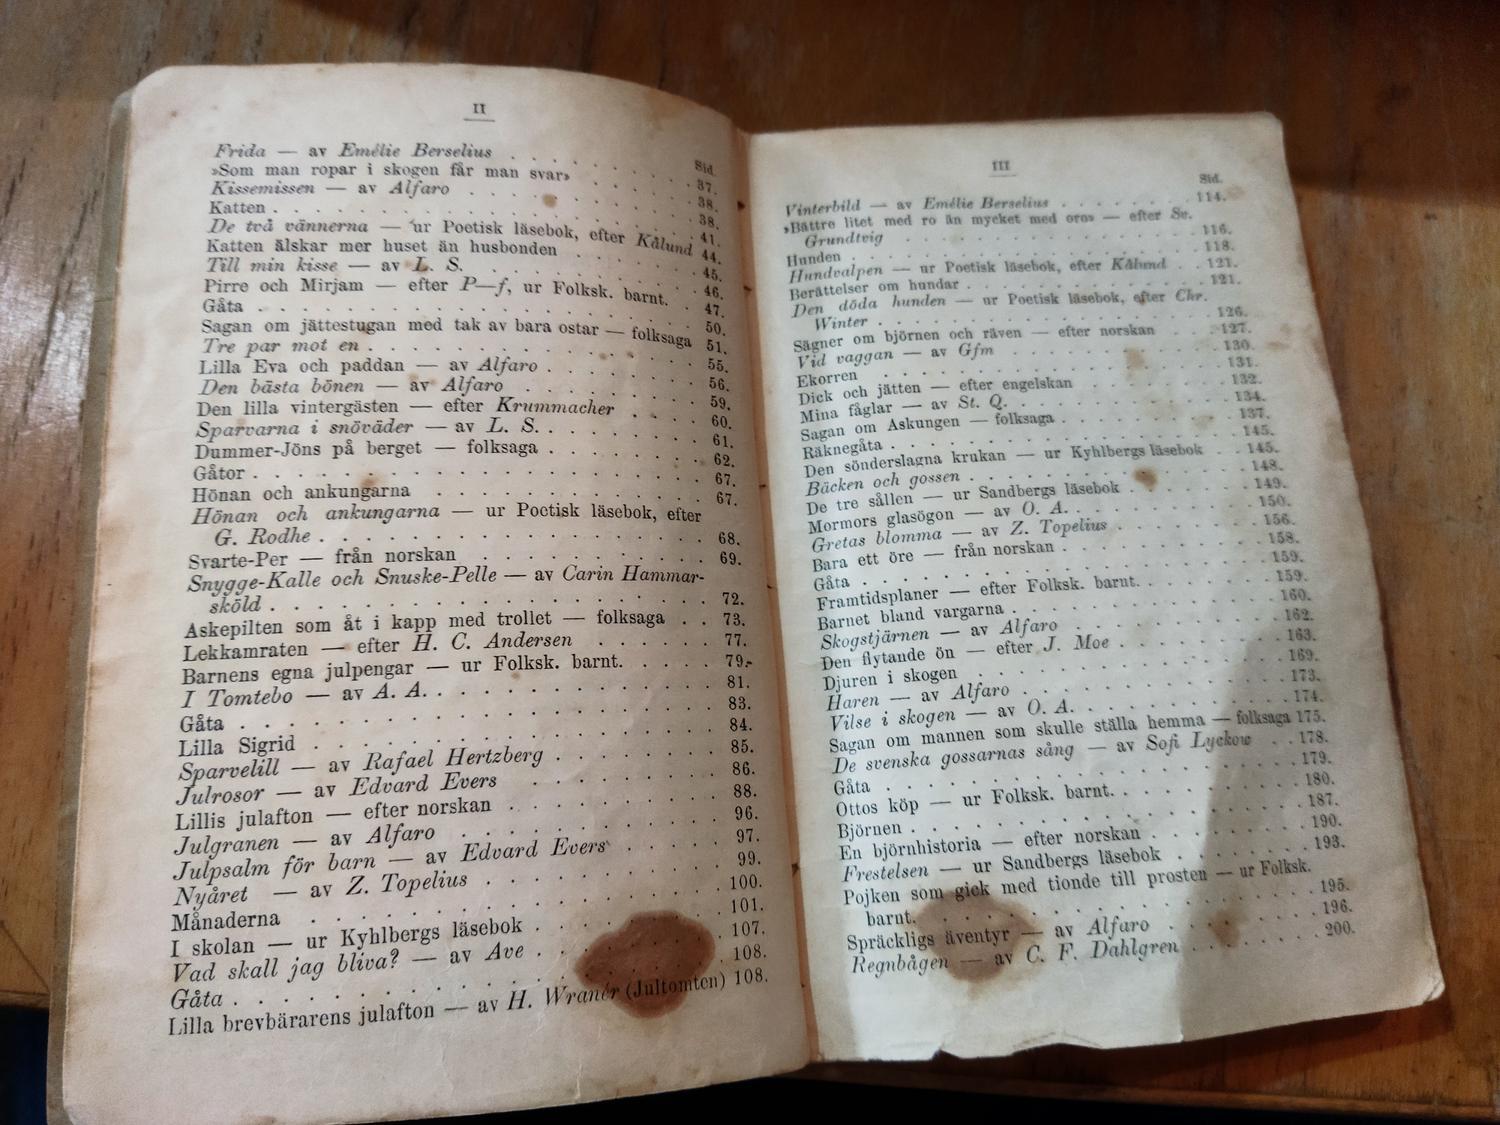 II
Sid.
Frida — av Emélie Berselius . . . . . . . 37.
»Som man ropar i skogen får man svar» . . . . . 38.
Kissemissen — av Alfaro . . . . . . . 38.
Katten . . . . . . . . . . . . 41.
De två vännerna — ur Poetisk läsebok, efter Kålund 44.
Katten älskar mer huset än husbonden . . . . . 45.
Till min kisse — av L. S. . . . . . . . 46.
Pirre och Mirjam — efter P—f, ur Folksk. barnt. . 47.
Gåta . . . . . . . . . . . . 50.
Sagan om jättestugan med tak av bara ostar — folksaga 51.
Tre par mot en . . . . . . . . . . 55.
Lilla Eva och paddan — av Alfaro . . . . . . 56.
Den bästa bönen — av Alfaro . . . . . . . 59.
Den lilla vintergästen — efter Krummacher . . . 60.
Sparvarna i snöväder — av L. S. . . . . . . 61.
Dummer-Jöns på berget — folksaga . . . . . . 62.
Gåtor . . . . . . . . . . . . 67.
Hönan och ankungarna . . . . . . . . 67.
Hönan och ankungarna — ur Poetisk läsebok, efter
G. Rodhe . . . . . . . . . . . 68.
Svarte-Per — från norskan . . . . . . . . 69.
Snygge-Kalle och Snuske-Pelle — av Carin Hammar-
sköld . . . . . . . . . . . . 72.
Askepilten som åt i kapp med trollet — folksaga . . 73.
Lekkamraten — efter H. C. Andersen . . . . . 77.
Barnens egna julpengar — ur Folksk. barnt. . . . . 79.
I Tomtebo — av A. A. . . . . . . . . . 81.
Gåta . . . . . . . . . . . . 83.
Lilla Sigrid . . . . . . . . . . . 84.
Sparvelill — av Rafael Hertzberg . . . . . . 85.
Julrosor — av Edvard Evers . . . . . . . 86.
Lillis julafton — efter norskan . . . . . . . 88.
Julgranen — av Alfaro . . . . . . . . 96.
Julpsalm för barn — av Edvard Evers . . . . . 97.
Nyåret — av Z. Topelius . . . . . . . . 99.
Månaderna . . . . . . . . . . . 100.
I skolan — ur Kyhlbergs läsebok . . . . . . 101.
Vad skall jag bliva? — av Ave . . . . . . . 107.
Gåta . . . . . . . . . . . . 108.
Lilla brevbärarens julafton — av H. Wranér (Jultomten) 108.
III
Sid.
Vinterbild — av Emélie Berselius . . . . . . . 114.
»Bättre litet med ro än mycket med oro» — efter Sv.
Grundtvig . . . . . . . . . . . 116.
Hunden . . . . . . . . . . . . 118.
Hundvalpen — ur Poetisk läsebok, efter Kålund . . 121.
Berättelser om hundar . . . . . . . . . 121.
Den döda hunden — ur Poetisk läsebok, efter Chr.
Winter . . . . . . . . . . . . 126.
Sägner om björnen och räven — efter norskan . . . 127.
Vid vaggan — av Gfm . . . . . . . . . 130.
Ekorren . . . . . . . . . . . . 131.
Dick och jätten — efter engelskan . . . . . . 132.
Mina fåglar — av St. Q. . . . . . . . . 134.
Sagan om Askungen — folksaga . . . . . . . 137.
Räknegåta . . . . . . . . . . . 145.
Den sönderslagna krukan — ur Kyhlbergs läsebok . . 145.
Bäcken och gossen . . . . . . . . . . 148.
De tre sållen — ur Sandbergs läsebok . . . . . 149.
Mormors glasögon — av O. A. . . . . . . . 150.
Gretas blomma — av Z. Topelius . . . . . . . 156.
Bara ett öre — från norskan . . . . . . . . 158.
Gåta . . . . . . . . . . . . 159.
Framtidsplaner — efter Folksk. barnt. . . . . . 159.
Barnet bland vargarna . . . . . . . . . 160.
Skogstjärnen — av Alfaro . . . . . . . . 162.
Den flytande ön — efter J. Moe . . . . . . . 163.
Djuren i skogen . . . . . . . . . . 169.
Haren — av Alfaro . . . . . . . . . . 173.
Vilse i skogen — av O. A. . . . . . . . . 174.
Sagan om mannen som skulle ställa hemma — folksaga 175.
De svenska gossarnas sång — av Sofi Lyckow . . 178.
Gåta . . . . . . . . . . . . 179.
Ottos köp — ur Folksk. barnt. . . . . . . . 180.
Björnen . . . . . . . . . . . . 187.
En björnhistoria — efter norskan . . . . . . . 190.
Frestelsen — ur Sandbergs läsebok . . . . . . 193.
Pojken som gick med tionde till prosten — ur Folksk.
barnt. . . . . . . . . . . . . 195.
Spräckligs äventyr — av Alfaro . . . . . . . 196.
Regnbågen — av C. F. Dahlgren . . . . . . . 200.